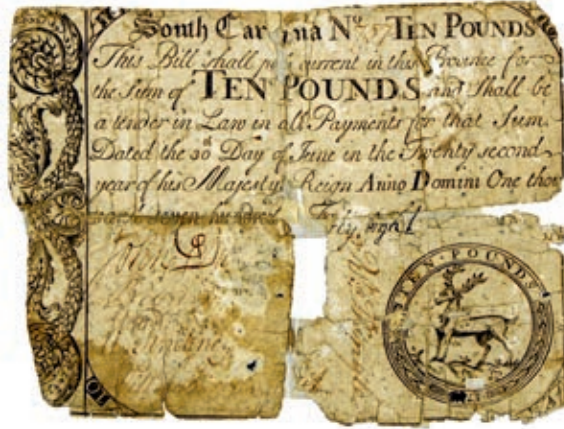 South Car ina No TEN POUNDS
This Bill shall pass current in this Province for
the Sum of TEN POUNDS and shall be
a tender in Law in all Payments for that Sum.
Dated the 30th Day of June in the Twenty second
year of his Majestys Reign Anno Domini One thou
sand seven hundred Forty eight
John
TEN · POUNDS